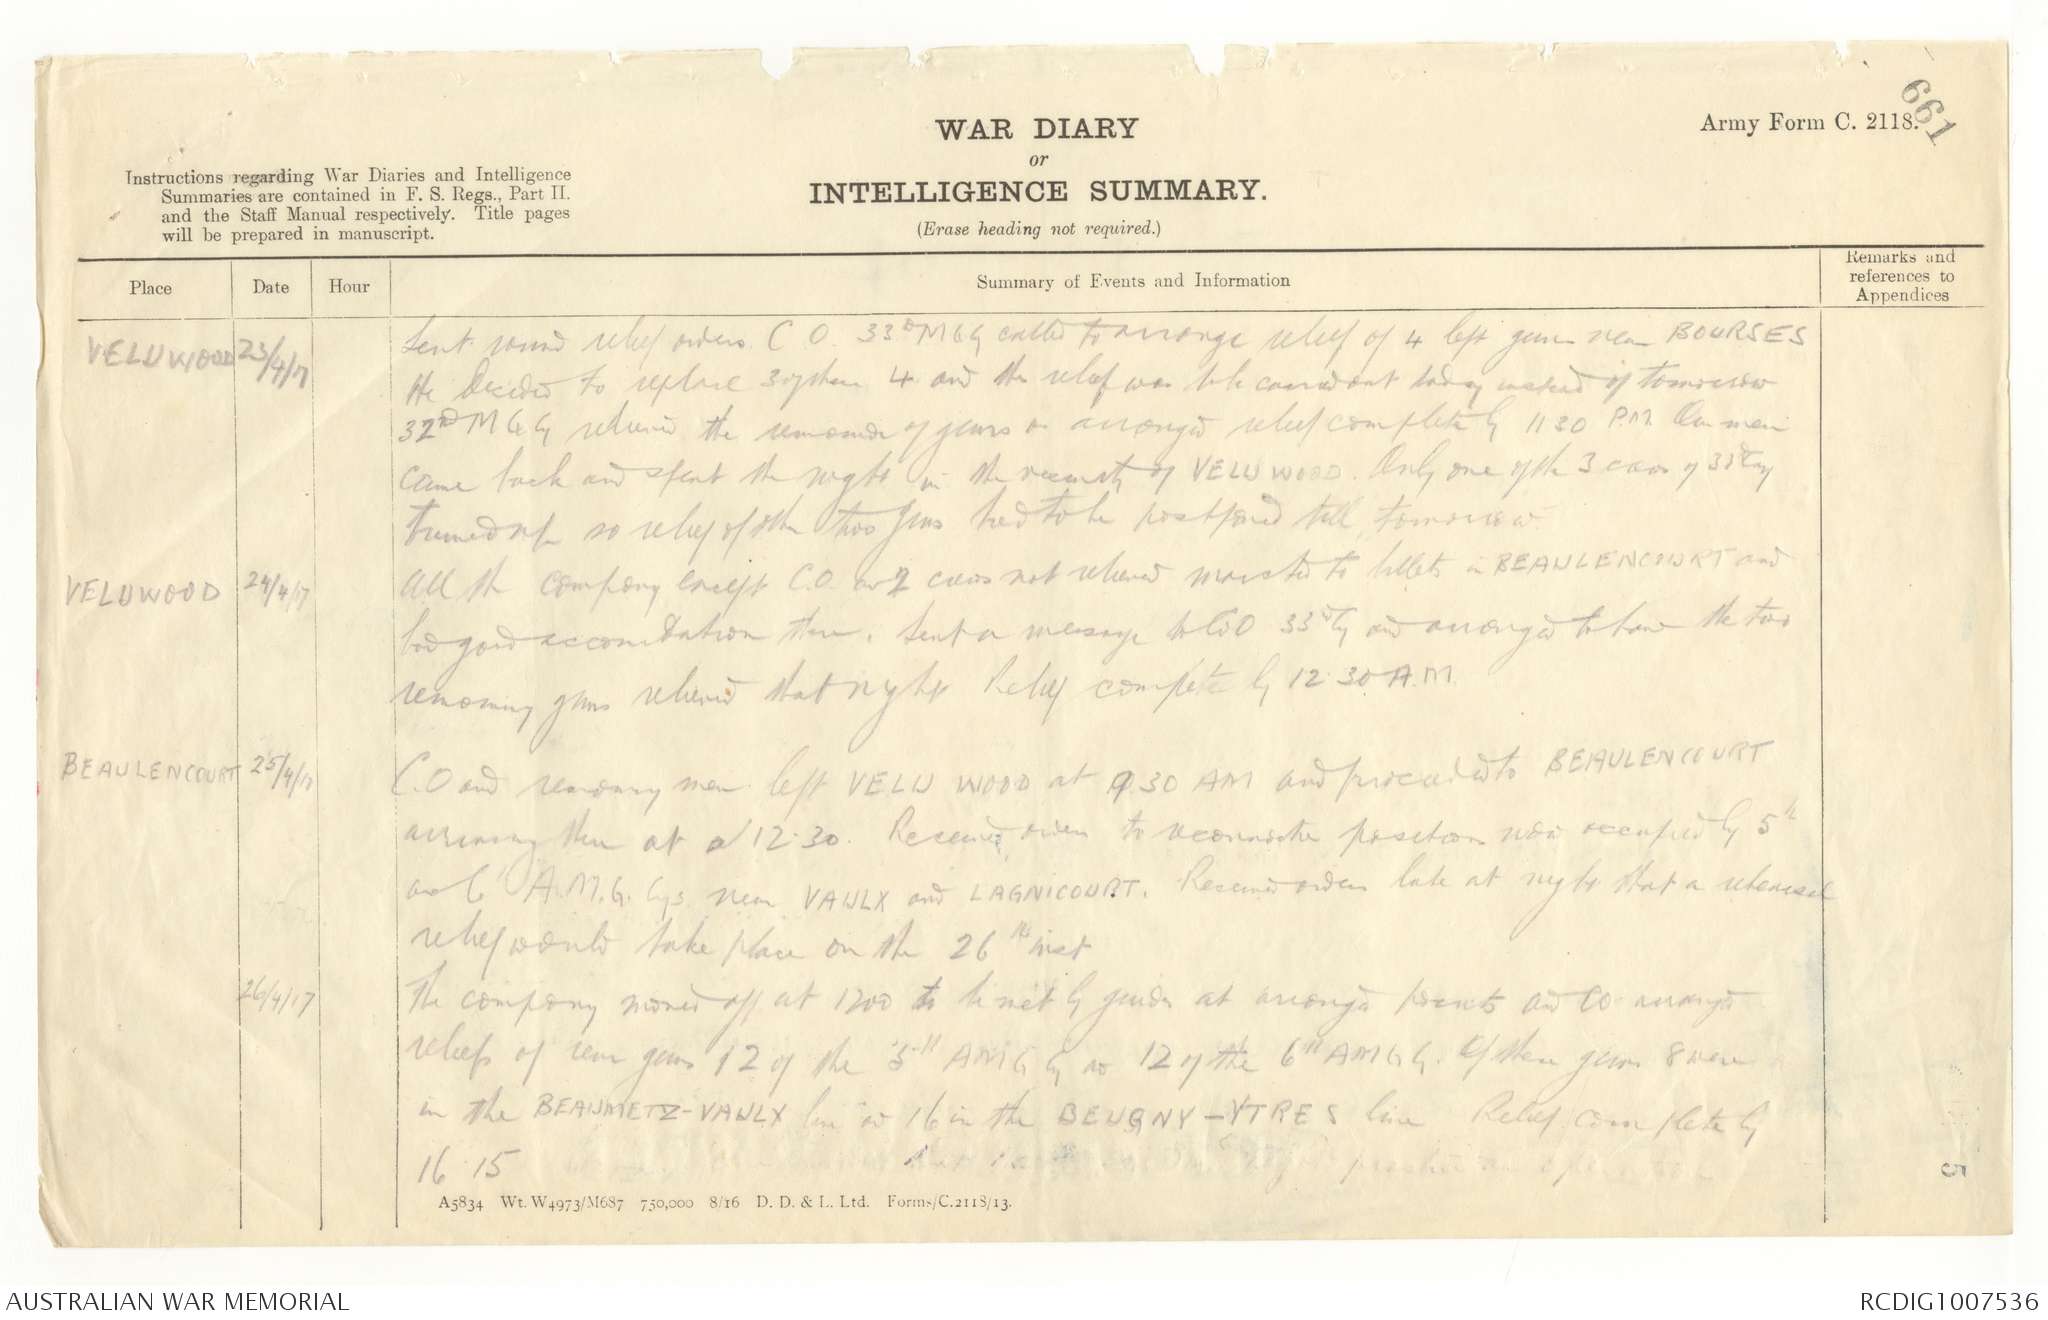 661
Army Form C. 2118.
WAR DIARY
or
INTELLIGENCE SUMMARY.
(Erase heading not required.)
Instructions regarding War Diaries and Intelligence
Summaries are contained in F. S. Regs., Part II.
and the Staff Manual respectively. Title pages
will be prepared in manuscript.
Place Date Hour Summary of Events and Information Remarks and references to Appendices
VELU WOOD 23/4/17 Sent round relief orders. C O. 33rd M G Cy called to arrange relief of 4 left guns near BOURSES
He decided to replace 3 of them 4 and the relief was to be carried out today instead of tomorrow
32nd M G Cy relieved the remainder of guns as arranged relief complete by 11 30 P.M. Our men
came back and spent the night in the vicinity of VELU WOOD. Only one of the 3 crews of 33rd Coy
turned up so relief of other two guns had to be postponed till tomorrow.
VELU WOOD 24/4/17 All the company except C.O. and 2 crews not relieved marched to billets in BEAULENCOURT and
had good accomodation there. Sent a message to CO 33rd Cy and arranged to have the two
remaining guns relieved that night Relief complete by 12.30 A.M.
BEAULENCOURT 25/4/17 C.O and remaining men left VELU WOOD at 9.30 AM and proceeded to BEAULENCOURT
arriving there at 12.30. Received orders to reconnoitre positions now occupied by 5th
and 6th A.M.G. Cys near VAULX and LAGNICOURT. Received orders late at night that a rehearsal
relief would take place on the 26th inst
26/4/17 The company moved off at 1200 to be met by guides at arranged points and CO arranged
reliefs of rear guns 12 of the 5th AMG Cy and 12 of the 6th AMG Cy. Of these guns 8 were
in the BEAUMETZ-VAULX line and 16 in the BEUGNY-YTRES line Relief complete by
16.15
A5834 Wt. W4973/M687 750,000 8/16 D. D. & L. Ltd. Forms/C.2118/13.
5
AUSTRALIAN WAR MEMORIAL
RCDIG1007536